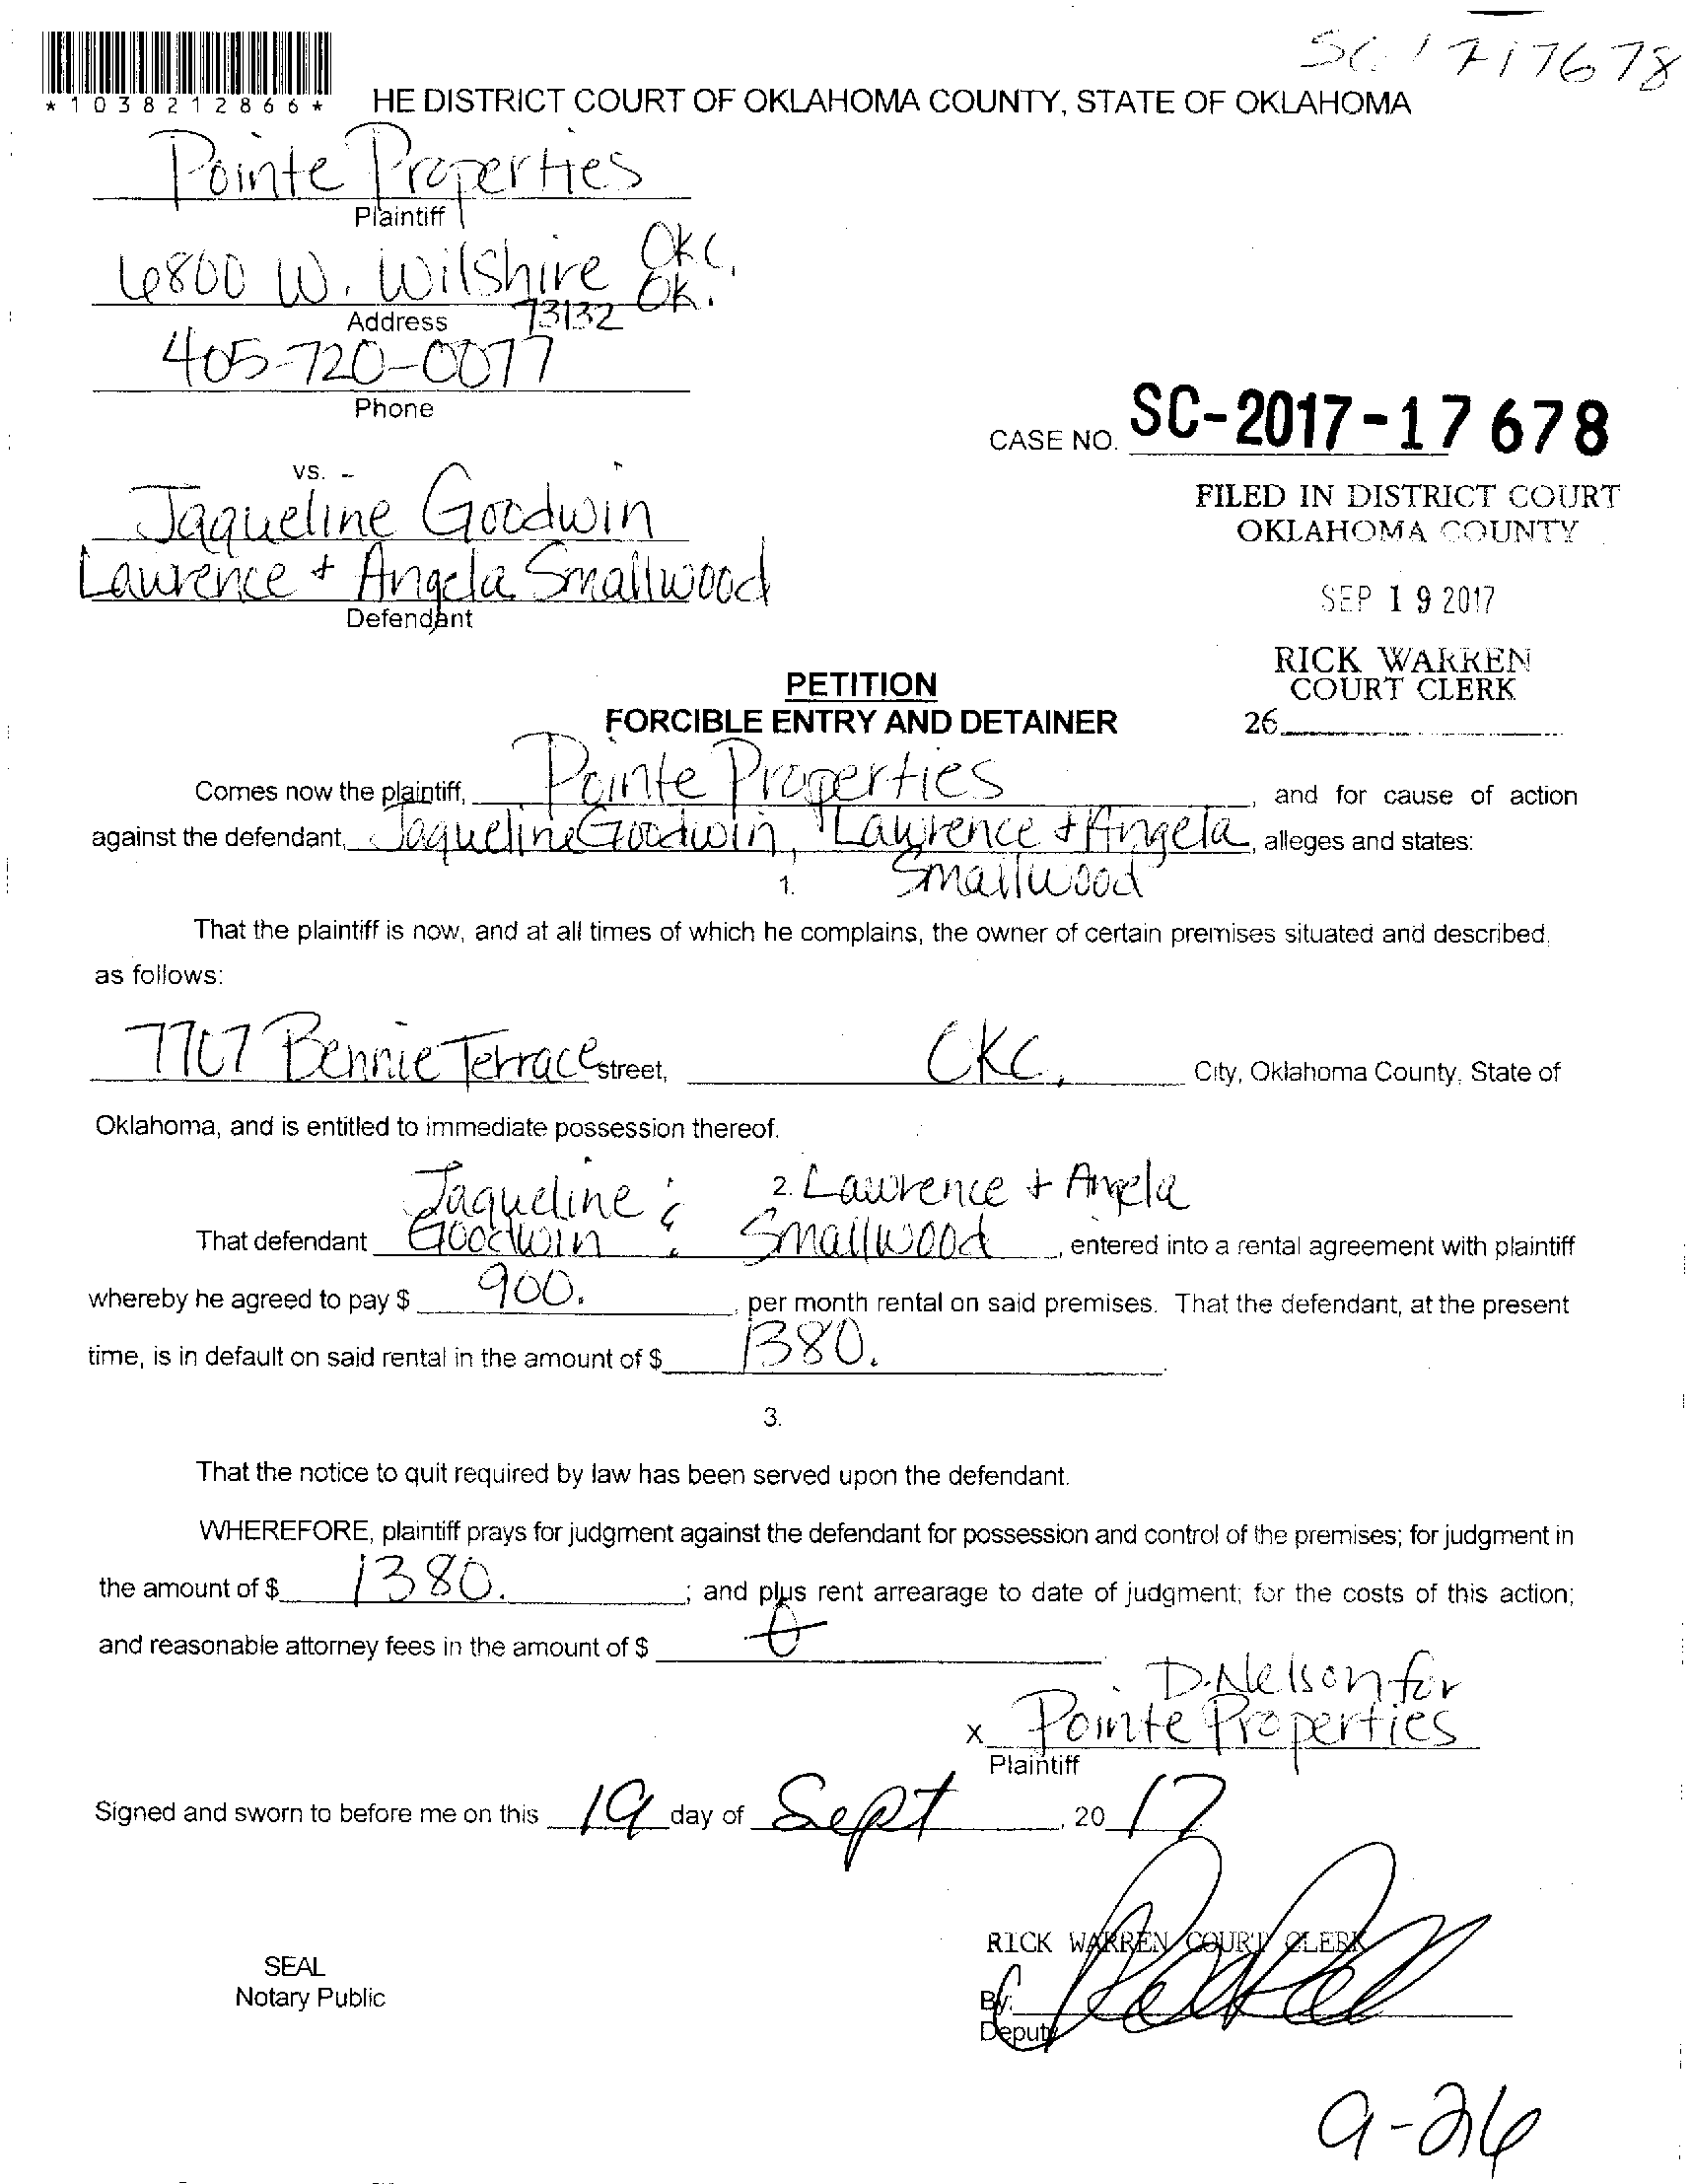 SC 1717678
*1038212866*
HE DISTRICT COURT OF OKLAHOMA COUNTY, STATE OF OKLAHOMA
Pointe Properties
Plaintiff
6800 W. Wilshire OKC, OK.
Address 73132
405-720-0077
Phone
CASE NO. SC-2017-17678
vs.
Jaqueline Goodwin
Lawrence + Angela Smallwood
Defendant
FILED IN DISTRICT COURT
OKLAHOMA COUNTY
SEP 19 2017
RICK WARREN
COURT CLERK
26
PETITION
FORCIBLE ENTRY AND DETAINER
Comes now the plaintiff, Pointe Properties, and for cause of action
against the defendant, Jaqueline Goodwin, Lawrence + Angela, alleges and states:
Smallwood
1.
That the plaintiff is now, and at all times of which he complains, the owner of certain premises situated and described,
as follows:
7707 Bennie Terrace street, OKC, City, Oklahoma County, State of
Oklahoma, and is entitled to immediate possession thereof.
Jaqueline & 2. Lawrence + Angela
That defendant Goodwin Smallwood, entered into a rental agreement with plaintiff
whereby he agreed to pay $ 900. , per month rental on said premises. That the defendant, at the present
time, is in default on said rental in the amount of $ 1380.
3.
That the notice to quit required by law has been served upon the defendant.
WHEREFORE, plaintiff prays for judgment against the defendant for possession and control of the premises; for judgment in
the amount of $ 1380. ; and plus rent arrearage to date of judgment; for the costs of this action;
and reasonable attorney fees in the amount of $ 0
D. Nelson for
x Pointe Properties
Plaintiff
Signed and sworn to before me on this 19 day of Sept, 20 17
RICK WARREN COURT CLERK
SEAL
Notary Public
By:
Deputy
9-26